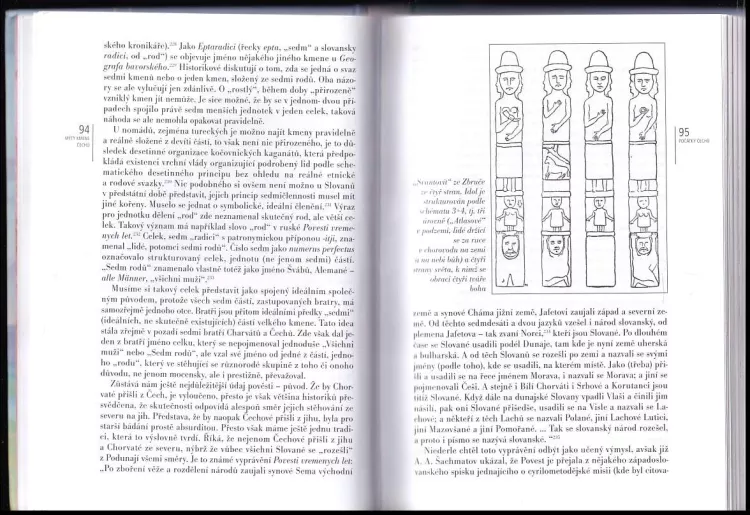 ského kronikáře). Jako Eptaradici (řecky epta, „sedm“ a slovansky
radici, od „rod“) se objevuje jméno nějakého jiného kmene u Geo-
grafa bavorského. Historikové diskutují o tom, zda se jedná o svaz
sedmi kmenů nebo o jeden kmen, složený ze sedmi rodů. Oba názo-
ry se ale vylučují jen zdánlivě. O „rostlý“, během doby „přirozeně“
vzniklý kmen jít nemůže. Je sice možné, že by se v jednom- dvou pří-
padech spojilo právě sedm menších jednotek v jeden celek, taková
náhoda se ale nemohla opakovat pravidelně.
U nomádů, zejména tureckých je možno najít kmeny pravidelně
a reálně složené z devíti částí, to však není nic přirozeného, je to dů-
sledek desetinné organizace kočovnických kaganátů, která předpo-
kládá existenci vrchní vlády organizující podrobený lid podle sche-
matického desetinného principu bez ohledu na reálné etnické
a rodové svazky. Nic podobného si ovšem není možno u Slovanů
v předstátní době představit, jejich princip sedmičlennosti musel mít
jiné kořeny. Muselo se jednat o symbolické, ideální členění. Výraz
pro jednotku dělení „rod“ zde neznamenal skutečný rod, ale větší ce-
lek. Takový význam má například slovo „rod“ v ruské Povesti vreme-
nych let. Celek, sedm „radici“ s patronymickou příponou -itji, zna-
menal „lidé, potomci sedmi rodů“. Číslo sedm jako numerus perfectus
označovalo strukturovaný celek, jednotu (ne jenom sedmi) částí.
„Sedm rodů“ znamenalo vlastně totéž jako jméno Švábů, Alemané –
alle Männer, „všichni muži“.
Musíme si takový celek představit jako spojený ideálním společ-
ným původem, protože všech sedm částí, zastupovaných bratry, má
samozřejmě jednoho otce. Bratři jsou přitom ideálními předky „sedmi“
(ideálních, ne skutečně existujících) částí velkého kmene. Tato idea
stála zřejmě v pozadí sedmi bratří Charvátů a Čechů. Zde však dal je-
den z bratří jméno celku, který se nepojmenoval jednoduše „Všichni
muži“ nebo „Sedm rodů“, ale vzal své jméno od jedné z částí, jedno-
ho „rodu“, který ve stěhující se různorodé skupině z toho či onoho
důvodu, ne jenom mocensky, ale i prestižně, převažoval.
Zůstává nám ještě nejdůležitější údaj pověsti – původ. Že by Chor-
vaté přišli z Čech, je vyloučeno, přesto je však většina historiků pře-
svědčena, že skutečnosti odpovídá alespoň směr jejich stěhování ze
severu na jih. Představa, že by naopak Čechové přišli z jihu, byla pro
starší bádání prostě absurditou. Přesto však máme ještě jednu tradi-
ci, která to výslovně tvrdí. Říká, že nejenom Čechové přišli z jihu
a Chorvaté ze severu, nýbrž že vůbec všichni Slované se „rozešli“
z Podunají všemi směry. Je to známé vyprávění Povesti vremenych let:
„Po zboření věže a rozdělení národů zaujali synové Sema východní
94
MÝTY KMENE
ČECHŮ
95
POČÁTKY ČECHŮ
„Svantovít“ ze Zbruče
ze čtyř stran. Idol je
strukturován podle
schématu 3–4, tj. tři
úrovně („Atlasové“
v podzemí, lidé držící
se za ruce
v chorovodu na zemi
a na nebi bůh) a čtyři
strany světa, k nimž se
obrací čtyři tváře
boha
země a synové Cháma jižní země, Jafetovi zaujali západ a severní ze-
mě. Od těchto sedmdesáti a dvou jazyků vzešel i národ slovanský, od
plemena Jafetova – tak zvaní Norci, kteří jsou Slované. Po dlouhém
čase se Slované usadili podel Dunaje, tam kde je nyní země uherská
a bulharská. A od těch Slovanů se rozešli po zemi a nazvali se svými
jmény (podle toho), kde se usadili, na kterém místě. Jako (třeba) při-
šli a usadili se na řece jménem Morava, i nazvali se Morava; a jiní se
pojmenovali Češi. A stejně i Bílí Chorváti i Srbové a Korutanci jsou
titíž Slované. Když dále na dunajské Slovany vpadli Vlaši a činili jim
násilí, pak oni Slované přišedše, usadili se na Visle a nazvali se La-
chové; a někteří z těch Lachů se nazvali Polané, jiní Lachové Lutici,
jiní Mazovšané a jiní Pomořané. ... Tak se slovanský národ rozešel,
a proto i písmo se nazývá slovanské.“
Niederle chtěl toto vyprávění odbýt jako učený výmysl, avšak již
A. A. Šachmatov ukázal, že Povest je přejala z nějakého západoslo-
vanského spisku jednajícího o cyrilometodějské misii (kde byl citova-